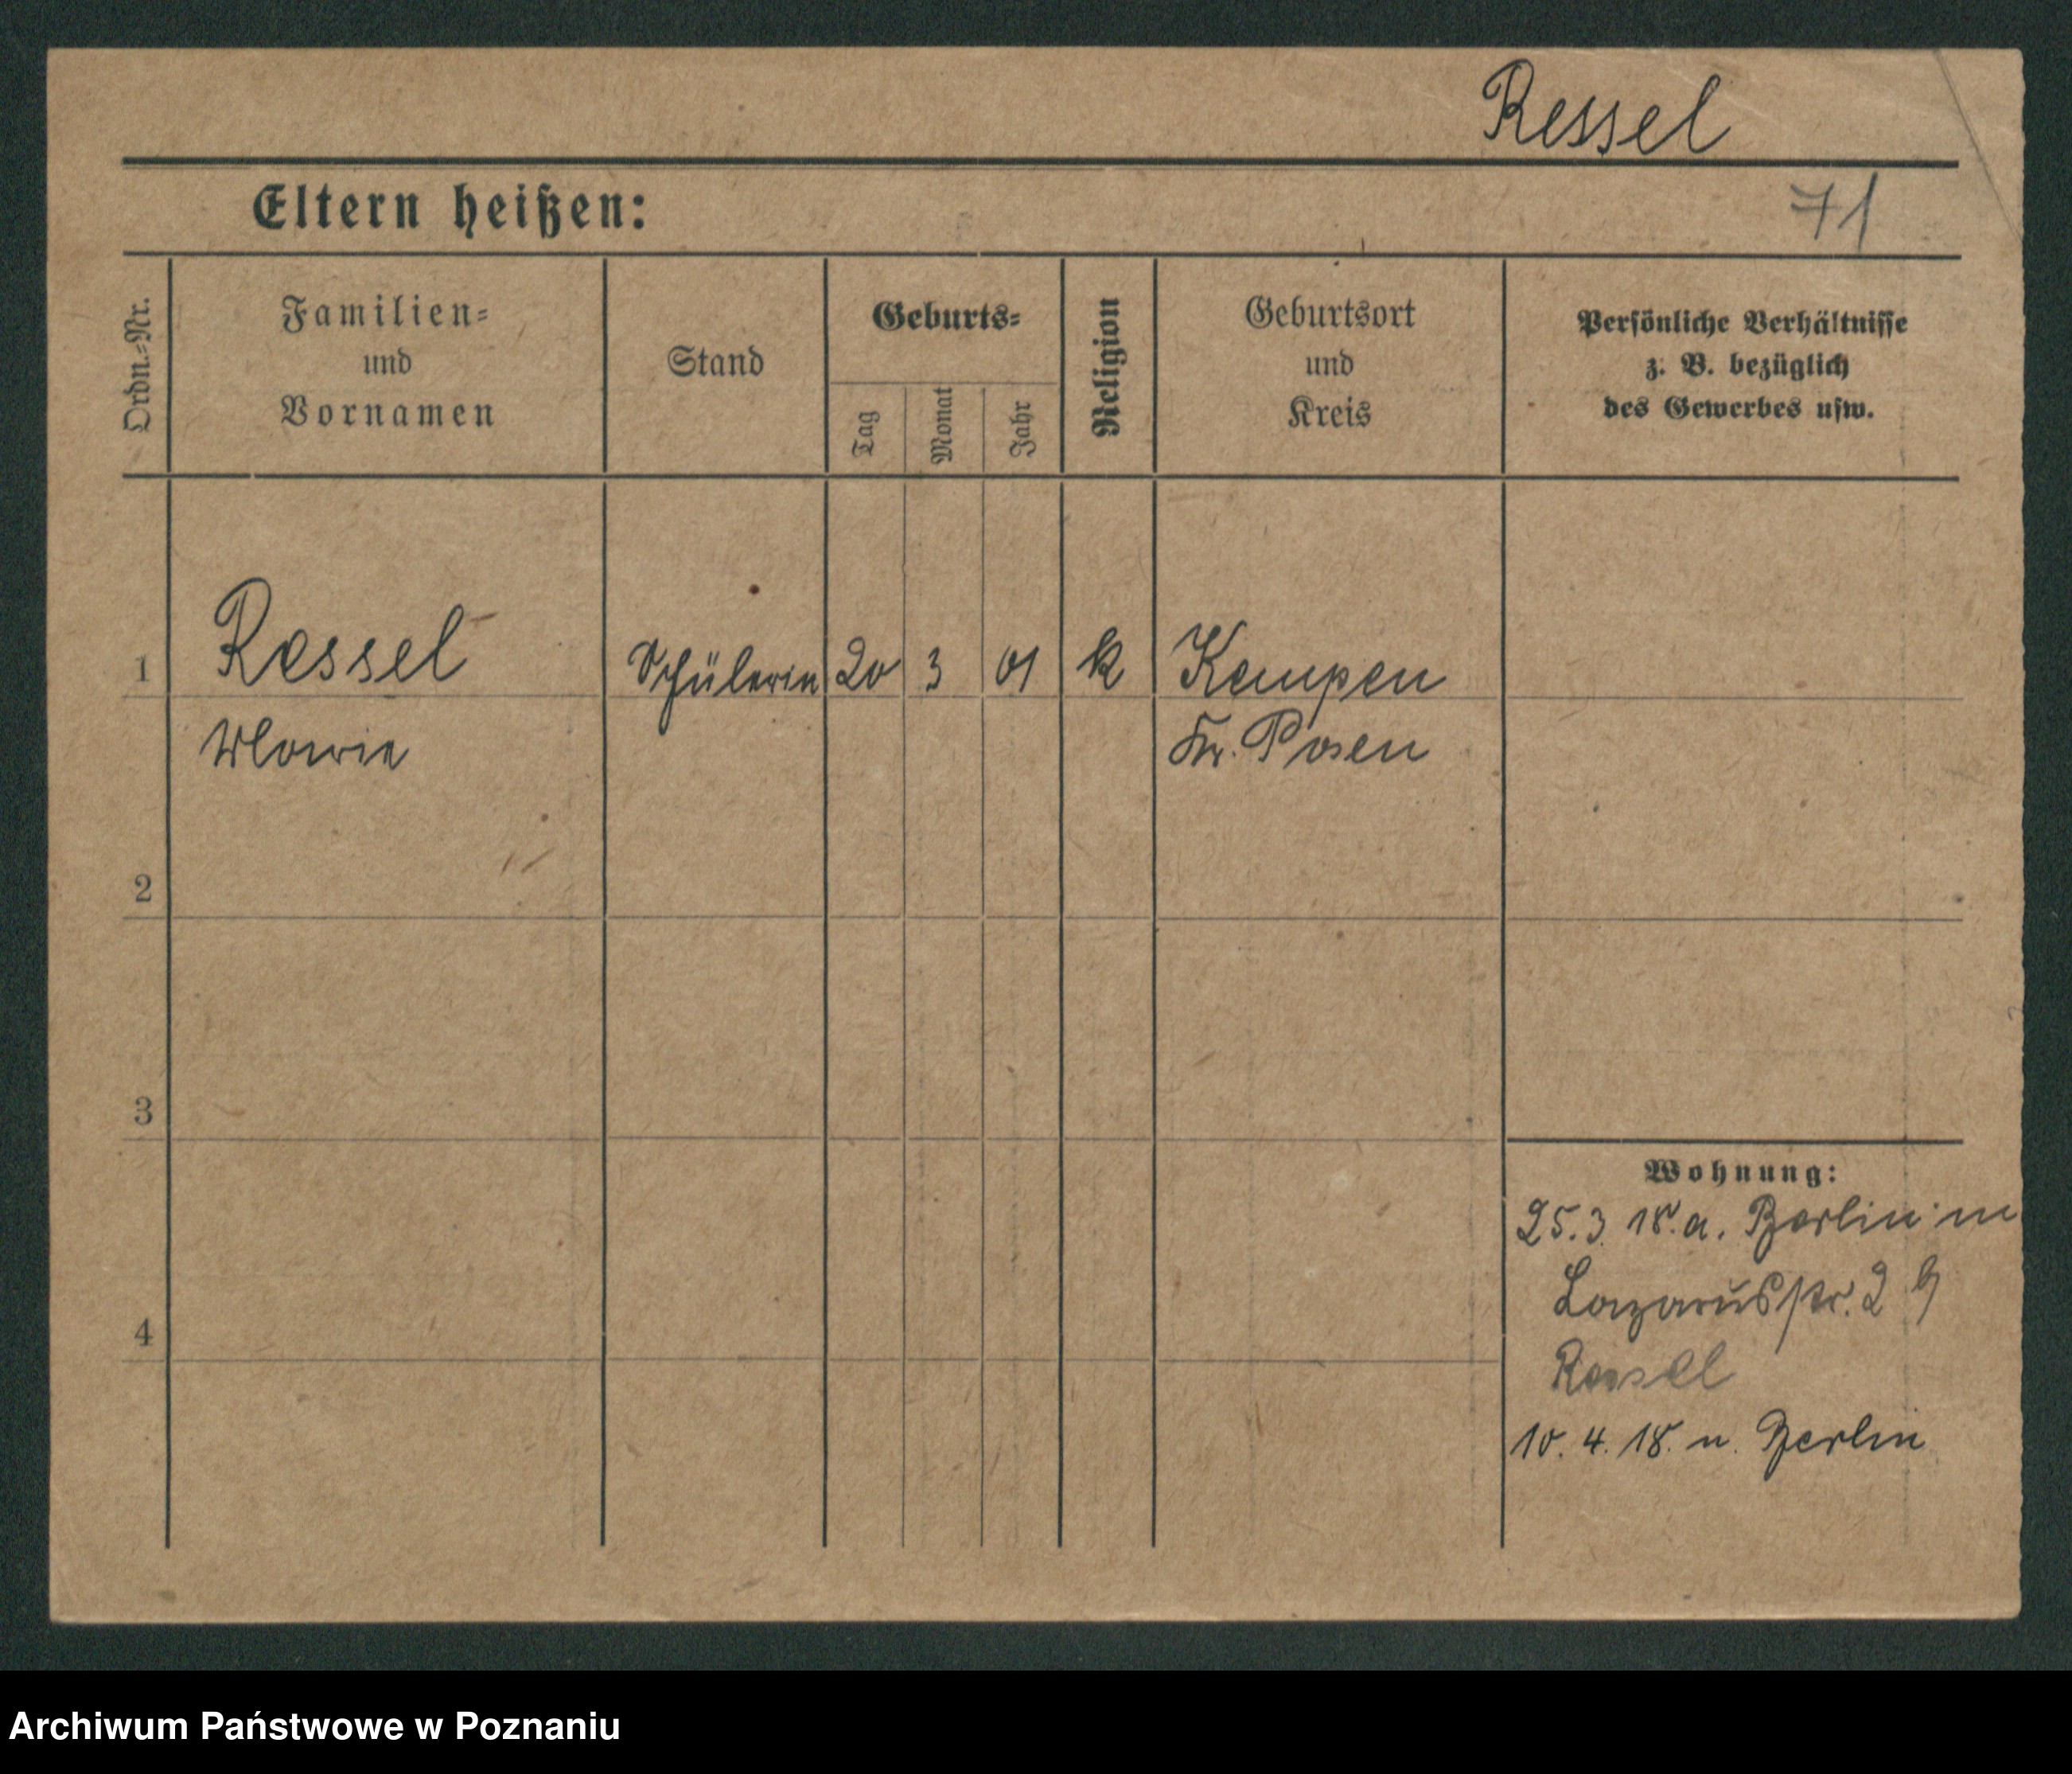 Ressel
Eltern heißen:
71
Ordn.=Nr.
Familien=
und
Vornamen
Stand
Geburts=
Tag
Monat
Jahr
Religion
Geburtsort
und
Kreis
Persönliche Verhältnisse
z. B. bezüglich
des Gewerbes usw.
1 Ressel Schülerin 20 3 01 k Kempen
Marie Kr. Posen
2
3
4
Wohnung:
25.3.18. a. Berlin in
Lazarusstr. 2 b
Ressel
10. 4. 18. n. Berlin
Archiwum Państwowe w Poznaniu